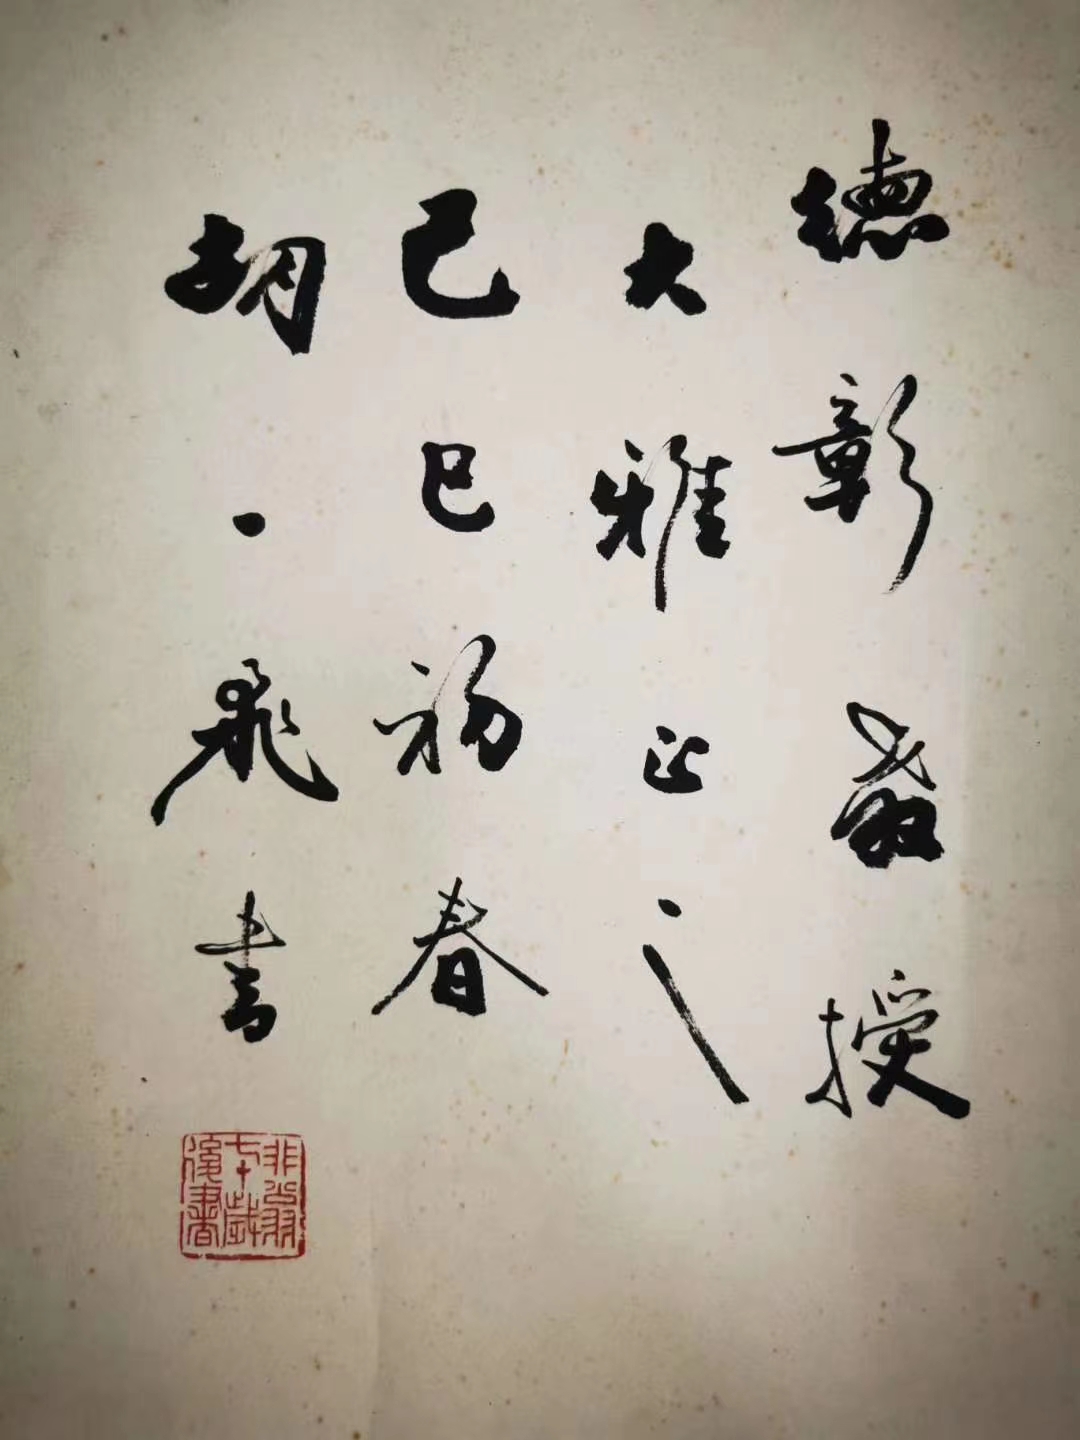 德彰教授
大雅正之
己巳初春
胡一飛書
非翁七十歲後書